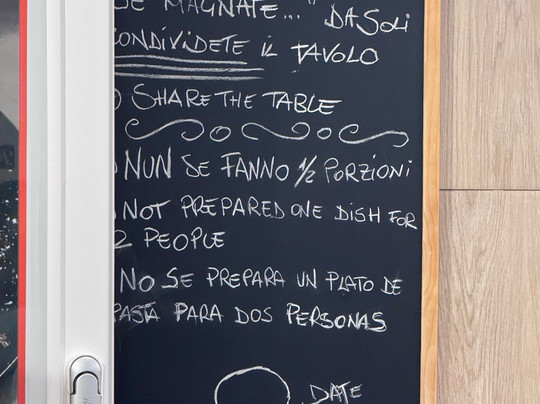 SE MAGNATE..." DA SOLI
CONDIVIDETE IL TAVOLO
) SHARE THE TABLE
NUN SE FANNO 1/2 PORZIONI
NOT PREPARED ONE DISH FOR
2 PEOPLE
NO SE PREPARA UN PLATO DE
PASTA PARA DOS PERSONAS
DATE